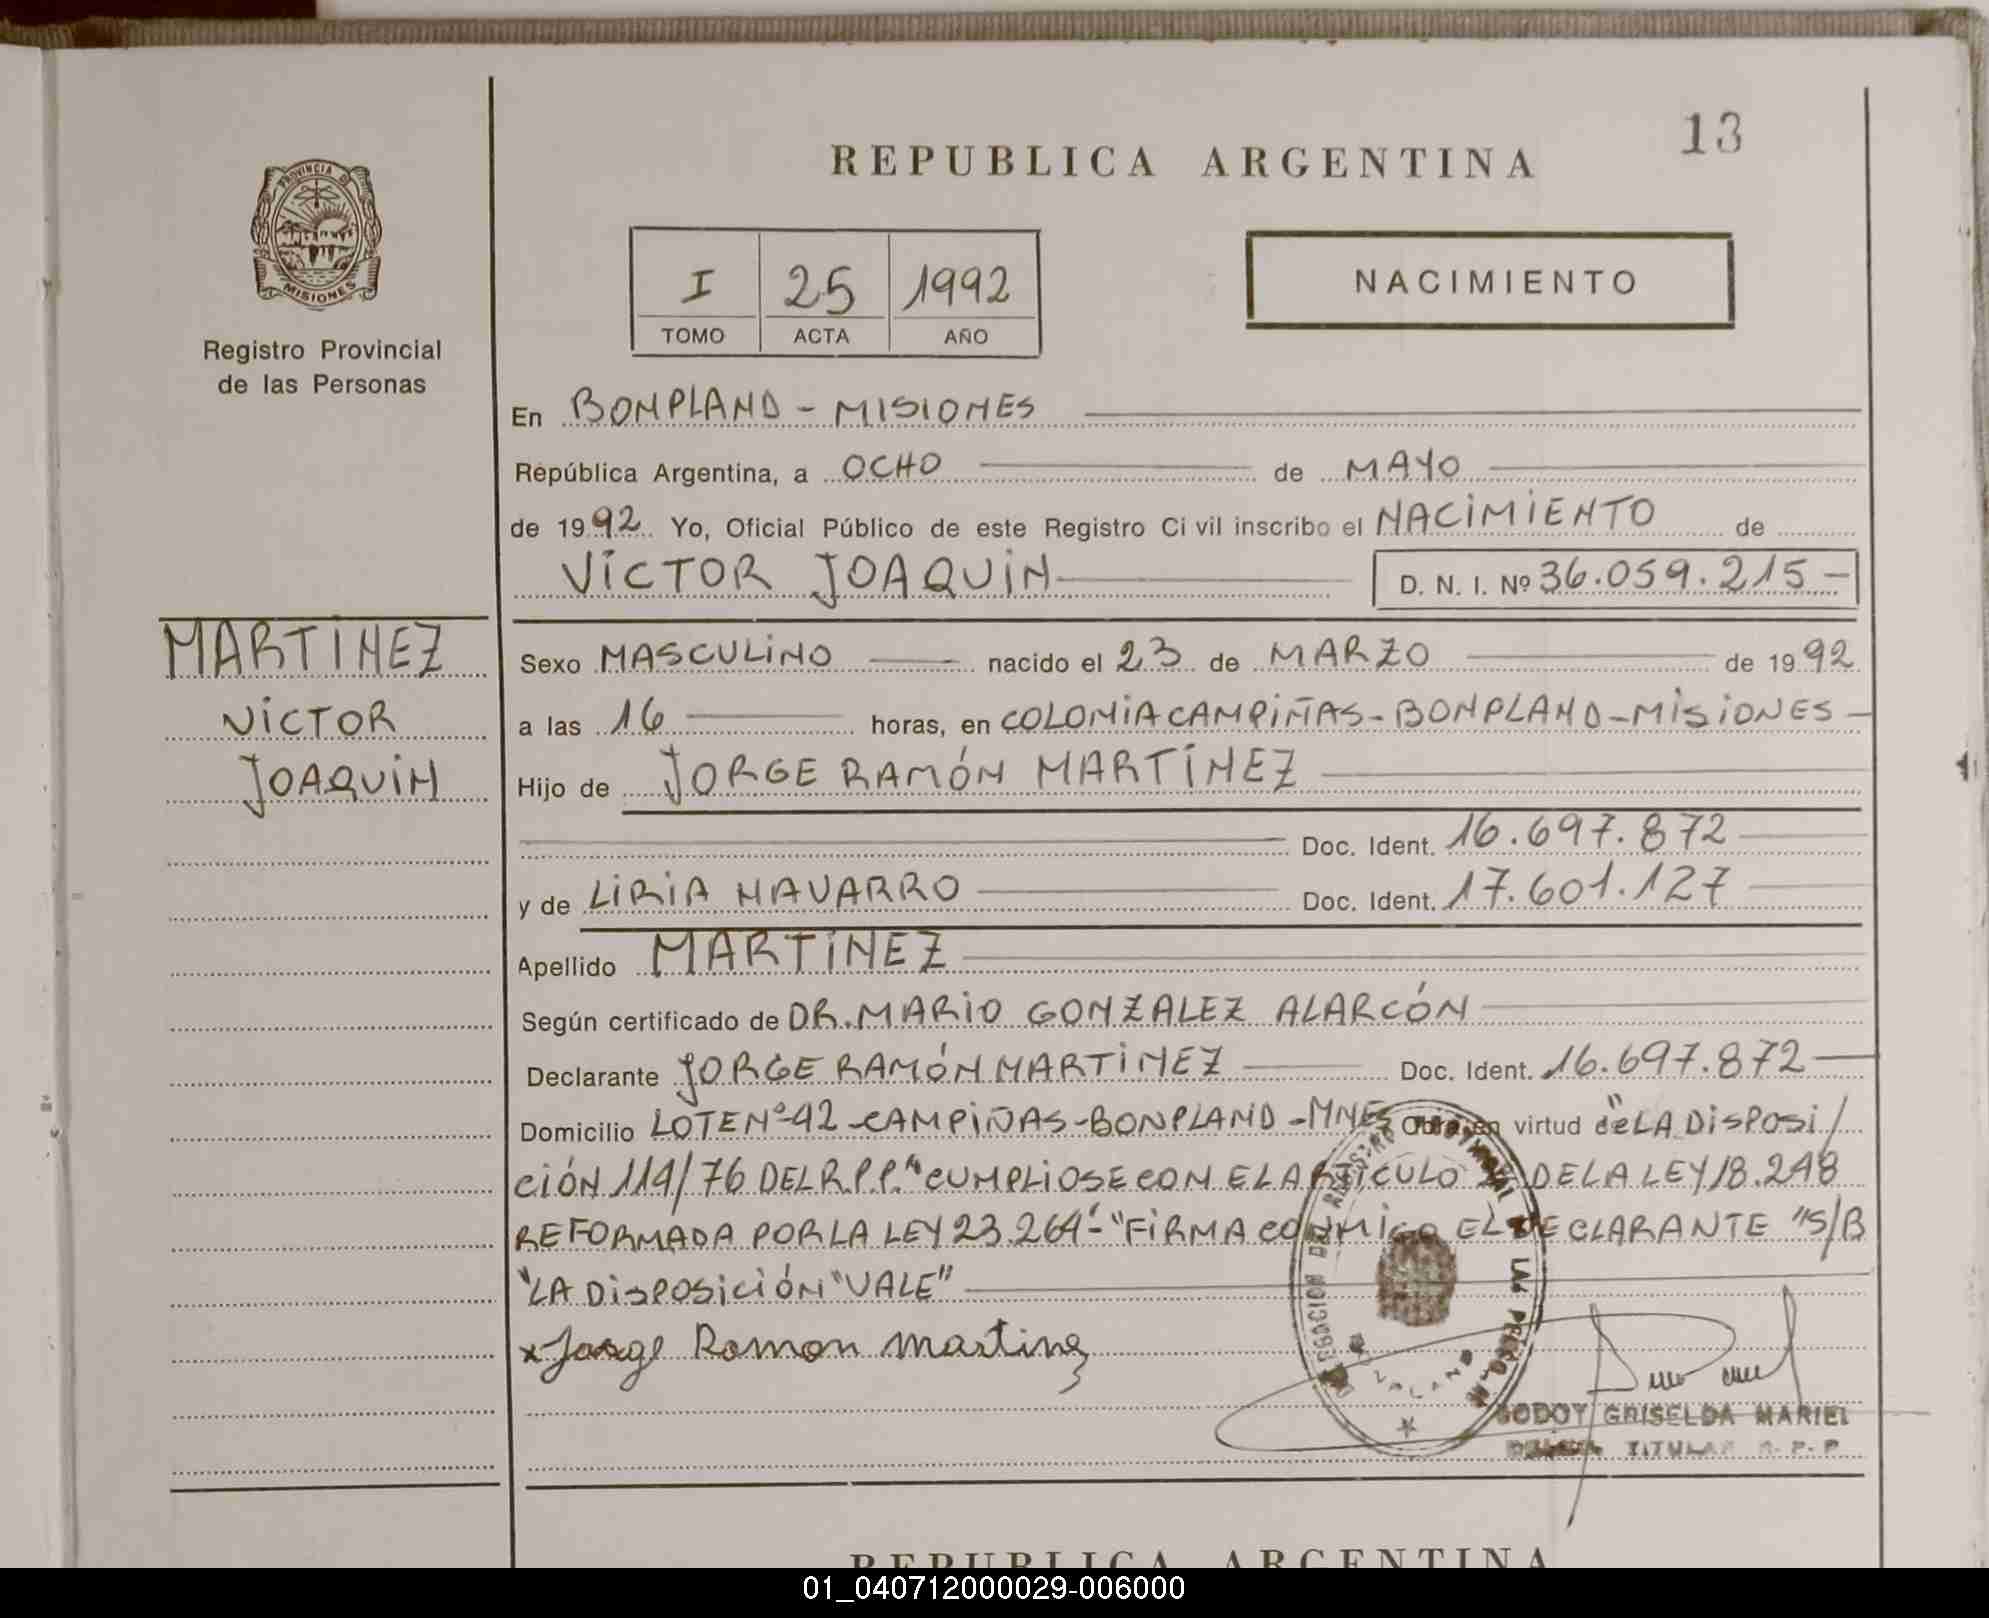 13
REPUBLICA ARGENTINA
PROVINCIA DE
MISIONES
Registro Provincial
de las Personas
I 25 1992
TOMO ACTA AÑO
NACIMIENTO
En BONPLAND - MISIONES
República Argentina, a OCHO de MAYO
de 1992 Yo, Oficial Público de este Registro Civil inscribo el NACIMIENTO de
VICTOR JOAQUIN D. N. I. Nº 36.059.215.-
MARTINEZ
VICTOR
JOAQUIN
Sexo MASCULINO nacido el 23 de MARZO de 1992
a las 16 horas, en COLONIA CAMPIÑAS - BONPLAND - MISIONES -
Hijo de JORGE RAMÓN MARTÍNEZ
Doc. Ident. 16.697.872
y de LIRIA NAVARRO Doc. Ident. 17.601.127
Apellido MARTINEZ
Según certificado de DR. MARIO GONZALEZ ALARCÓN
Declarante JORGE RAMÓN MARTINEZ Doc. Ident. 16.697.872
Domicilio LOTE Nº 42 - CAMPIÑAS - BONPLAND - MNES Obra en virtud de "LA DISPOSI/
CIÓN 114/76 DEL R.P.P." "CUMPLIOSE CON EL ARTICULO DE LA LEY 18.248
REFORMADA POR LA LEY 23.264"- "FIRMA CONMIGO EL DECLARANTE "S/B
"LA DISPOSICIÓN "VALE"
x Jorge Ramon Martinez
GODOY GRISELDA MARIEL
TITULAR R.P.P.
REPUBLICA ARGENTINA
01_040712000029-006000